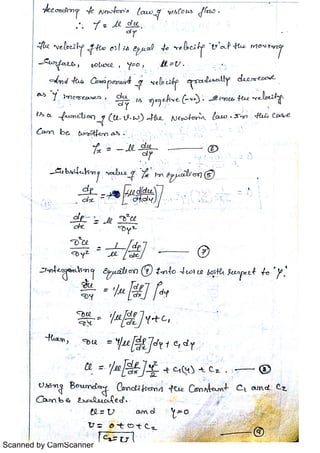 According to Newton's law of viscous flow.
∴ τ = μ du/dy
The velocity of the oil is equal to velocity 'U' at the moving
surface, where, y=0, u=U.
And the Component of velocity gradually decrease
as 'y' increases, du/dy is negative (-ve). Since the velocity
is a function of (u.v.w) the Newton's law in this case
Can be written as.
τx = - μ du/dy — ⑥
Substituting value of τx in equation ⑤
dp/dx = + [μ d(du)/dy dy]
dp/dx = μ ∂²u/∂y²
∂²u/∂y² = 1/μ [dp/dx] — ⑦
Integrating Equation ⑦ into twice with respect to 'y'.
∂u/∂y = 1/μ [dp/dx] ∫dy
∂u/∂y = 1/μ [dp/dx] y + C₁
then, ∂u = 1/μ [dp/dx] y dy + C₁ dy
u = 1/μ [dp/dx] y²/2 + C₁(y) + C₂ — ⑧
Using Boundary Conditions the Constant C₁ and C₂
Can be Evaluated.
u=U and y=0
U = 0 + 0 + C₂
C₂ = U — ⑨
Scanned by CamScanner